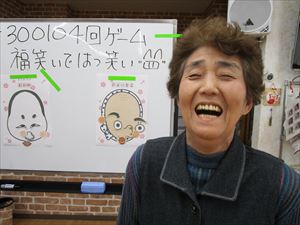 300104回ゲーム
福笑いではつ笑い